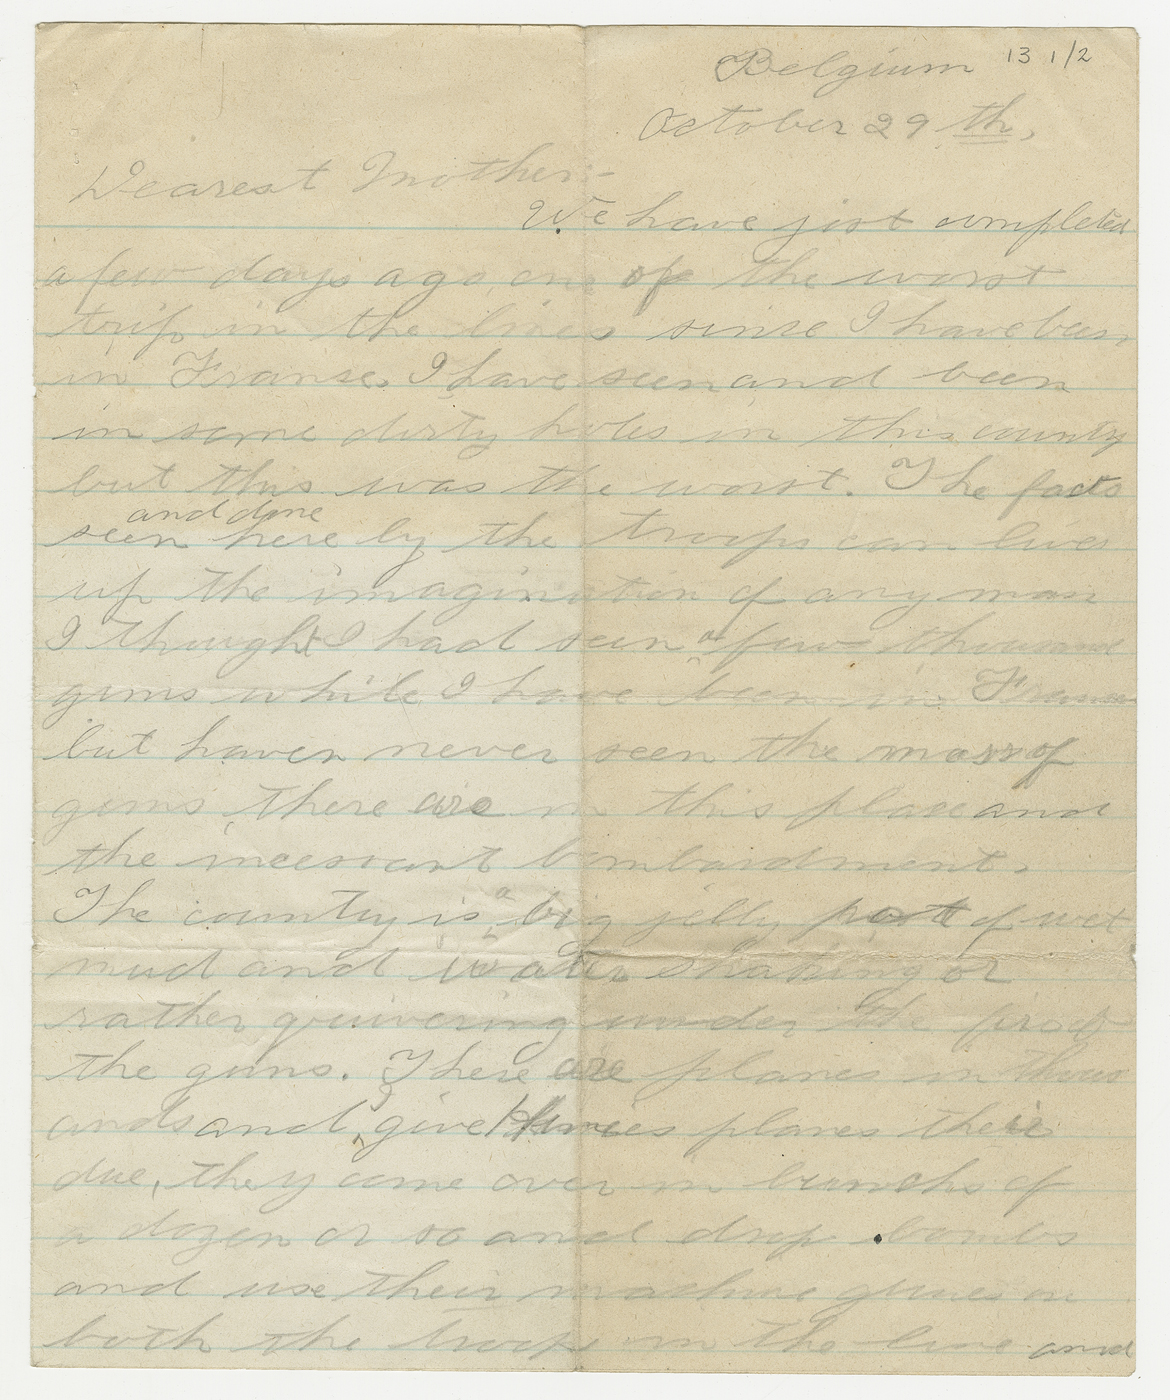 Belgium 13 1/2
October 29 th,
Dearest Mother:-
We have jist completed
a few days ago one of the worst
trip in the lines since I have been
in Franse. I have seen and been
in some dirty holes in this county
but this was the worst. The facts
and done
seen here by the troops can live
up the imagination of any man
I thought I had seen a few thousand
guns while I have been in France
but haven never seen the mass of
guns there are in this place and
the incessant bombardment.
The country is a big jelly part of wet
mud and water shaking or
rather quivering under the
the guns. There are planes in thous
ands and, give Hunnies planes their
due, they come over in bunchs of
a dozen or so and drop bombs
and use their machine gunes on
both the troops in the line and